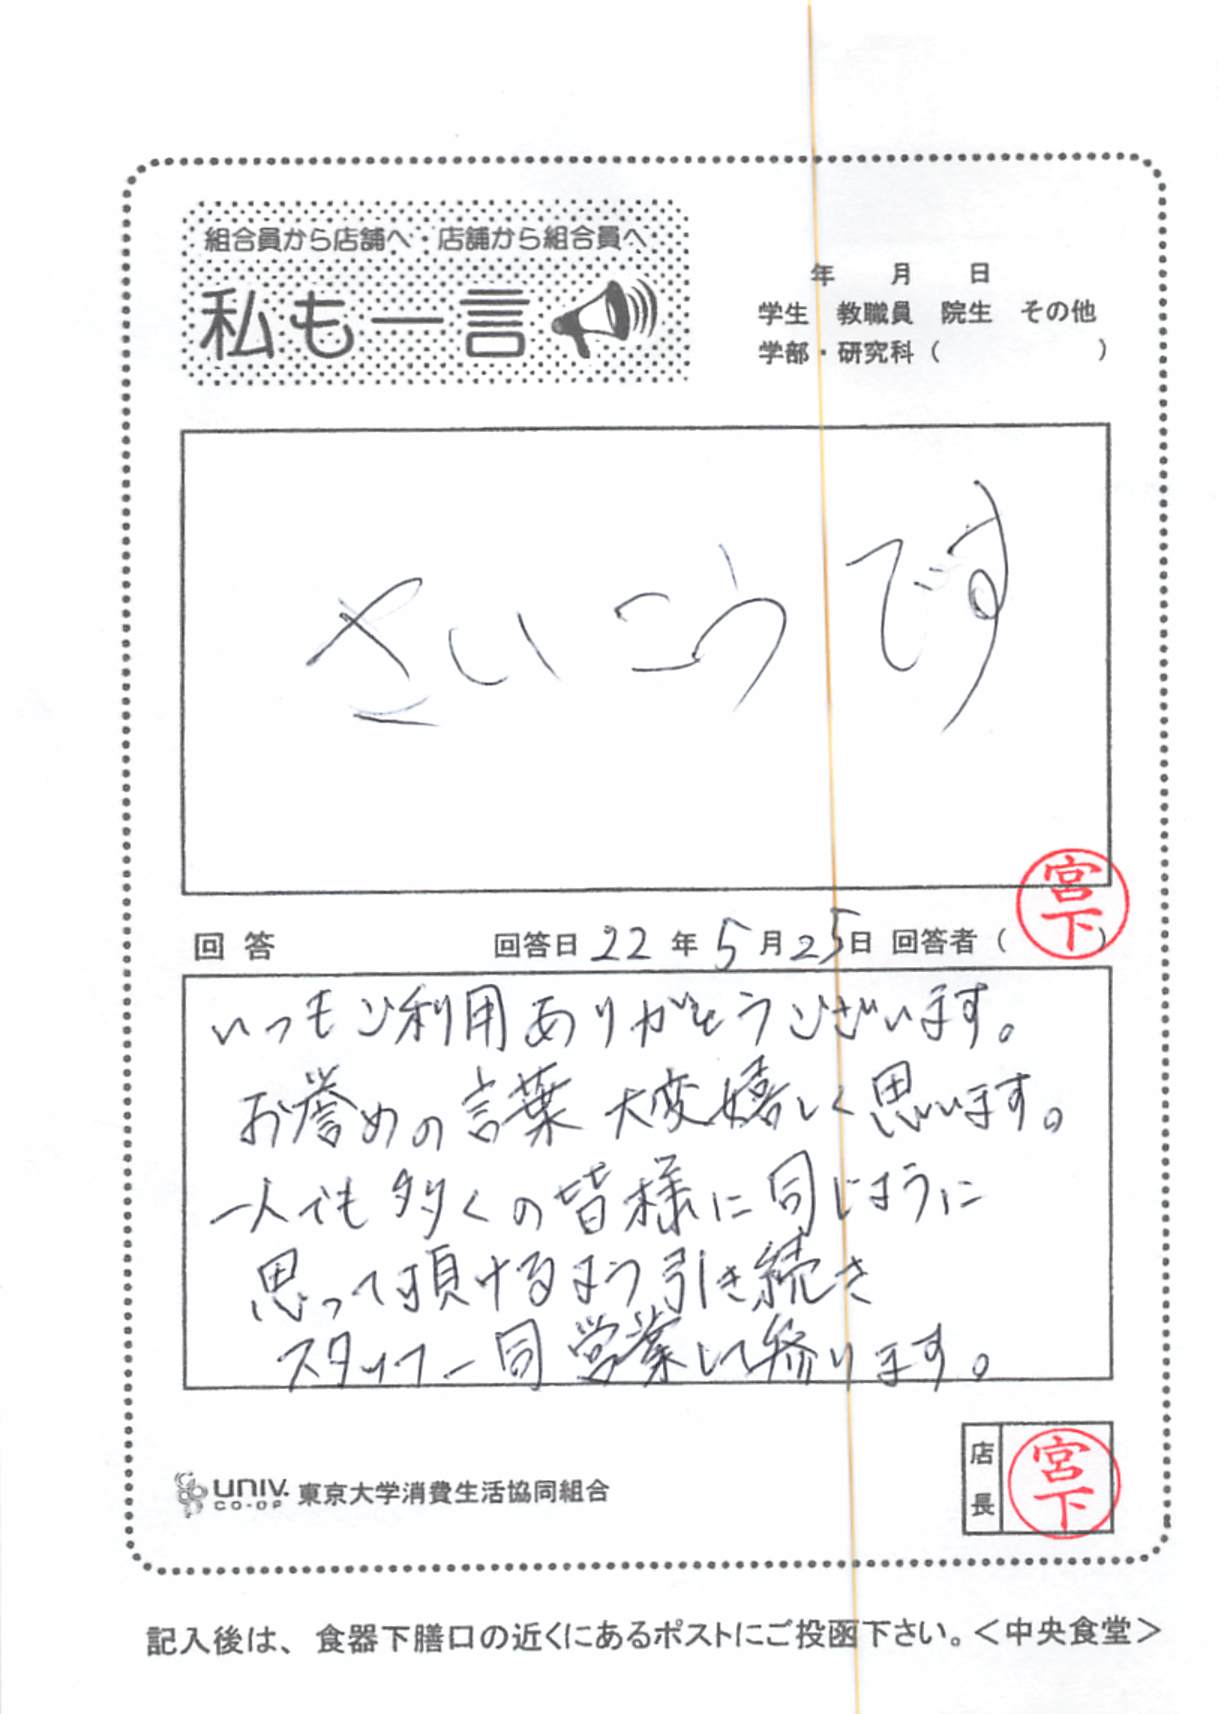 組合員から店舗へ・店舗から組合員へ
私も一言
年 月 日
学生 教職員 院生 その他
学部・研究科（ ）
さいこうです
回答 回答日 22 年 5 月 25 日 回答者（宮下）
いつもご利用ありがとうございます。
お誉めの言葉 大変嬉しく思います。
一人でも多くの皆様に同じように
思って頂けるよう引き続き
スタッフ一同 営業して参ります。
UNIV. CO-OP 東京大学消費生活協同組合
店長 宮下
記入後は、食器下膳口の近くにあるポストにご投函下さい。＜中央食堂＞